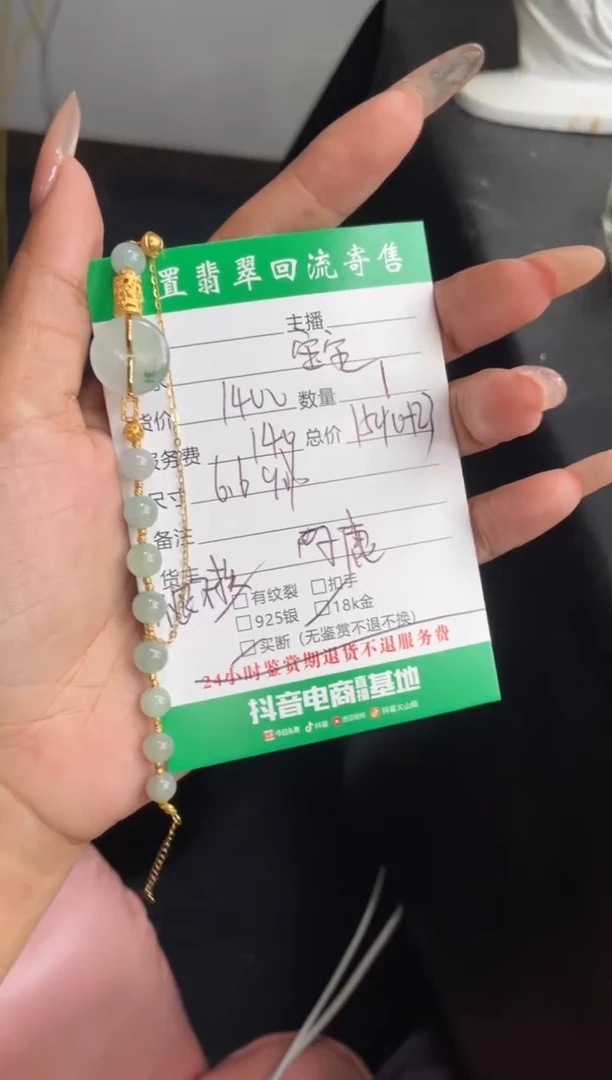 置翡翠回流寄售
主播
宝宝
货价 1400 数量 1
服务费 140 总价 1540+23
尺寸 6.6
备注
货主 阿康
□有纹裂 □扣手
□925银 □18k金
□买断（无鉴赏不退不换）
24小时鉴赏期退货不退服务费
抖音电商直播基地
今日头条 抖音 西瓜视频 抖音火山版